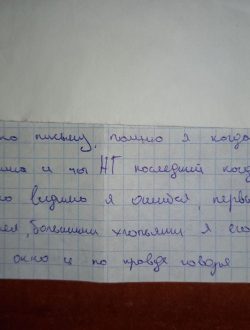 письму, помню я когда
и мы НГ последний когд
видимо я ошибся, первы
, большими хлопьями я
окно и по правде говоря